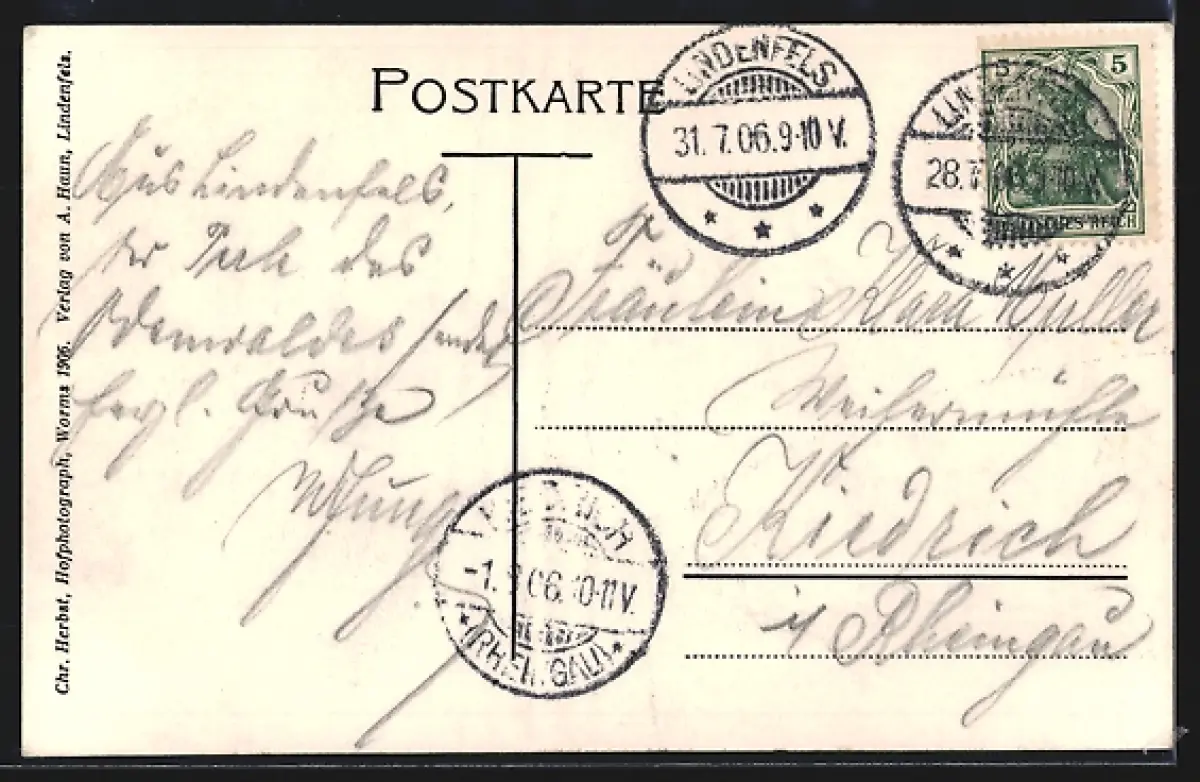 POSTKARTE
Chr. Herbst, Hofphotograph, Worms 1906. Verlag von A. Haun, Lindenfels.
LINDENFELS
31. 7. 06. 9-10 V.
28.7
5 5
DEUTSCHES REICH
Aus Lindenfels,
der Perle des
Odenwaldes sendet
herzl. Grüße
Fräulein Klara Müller
Weihermühle
Kiedrich
i/ Rheingau
KIEDRICH
-1. 06. 10-11 V.
(RHEINGAU)